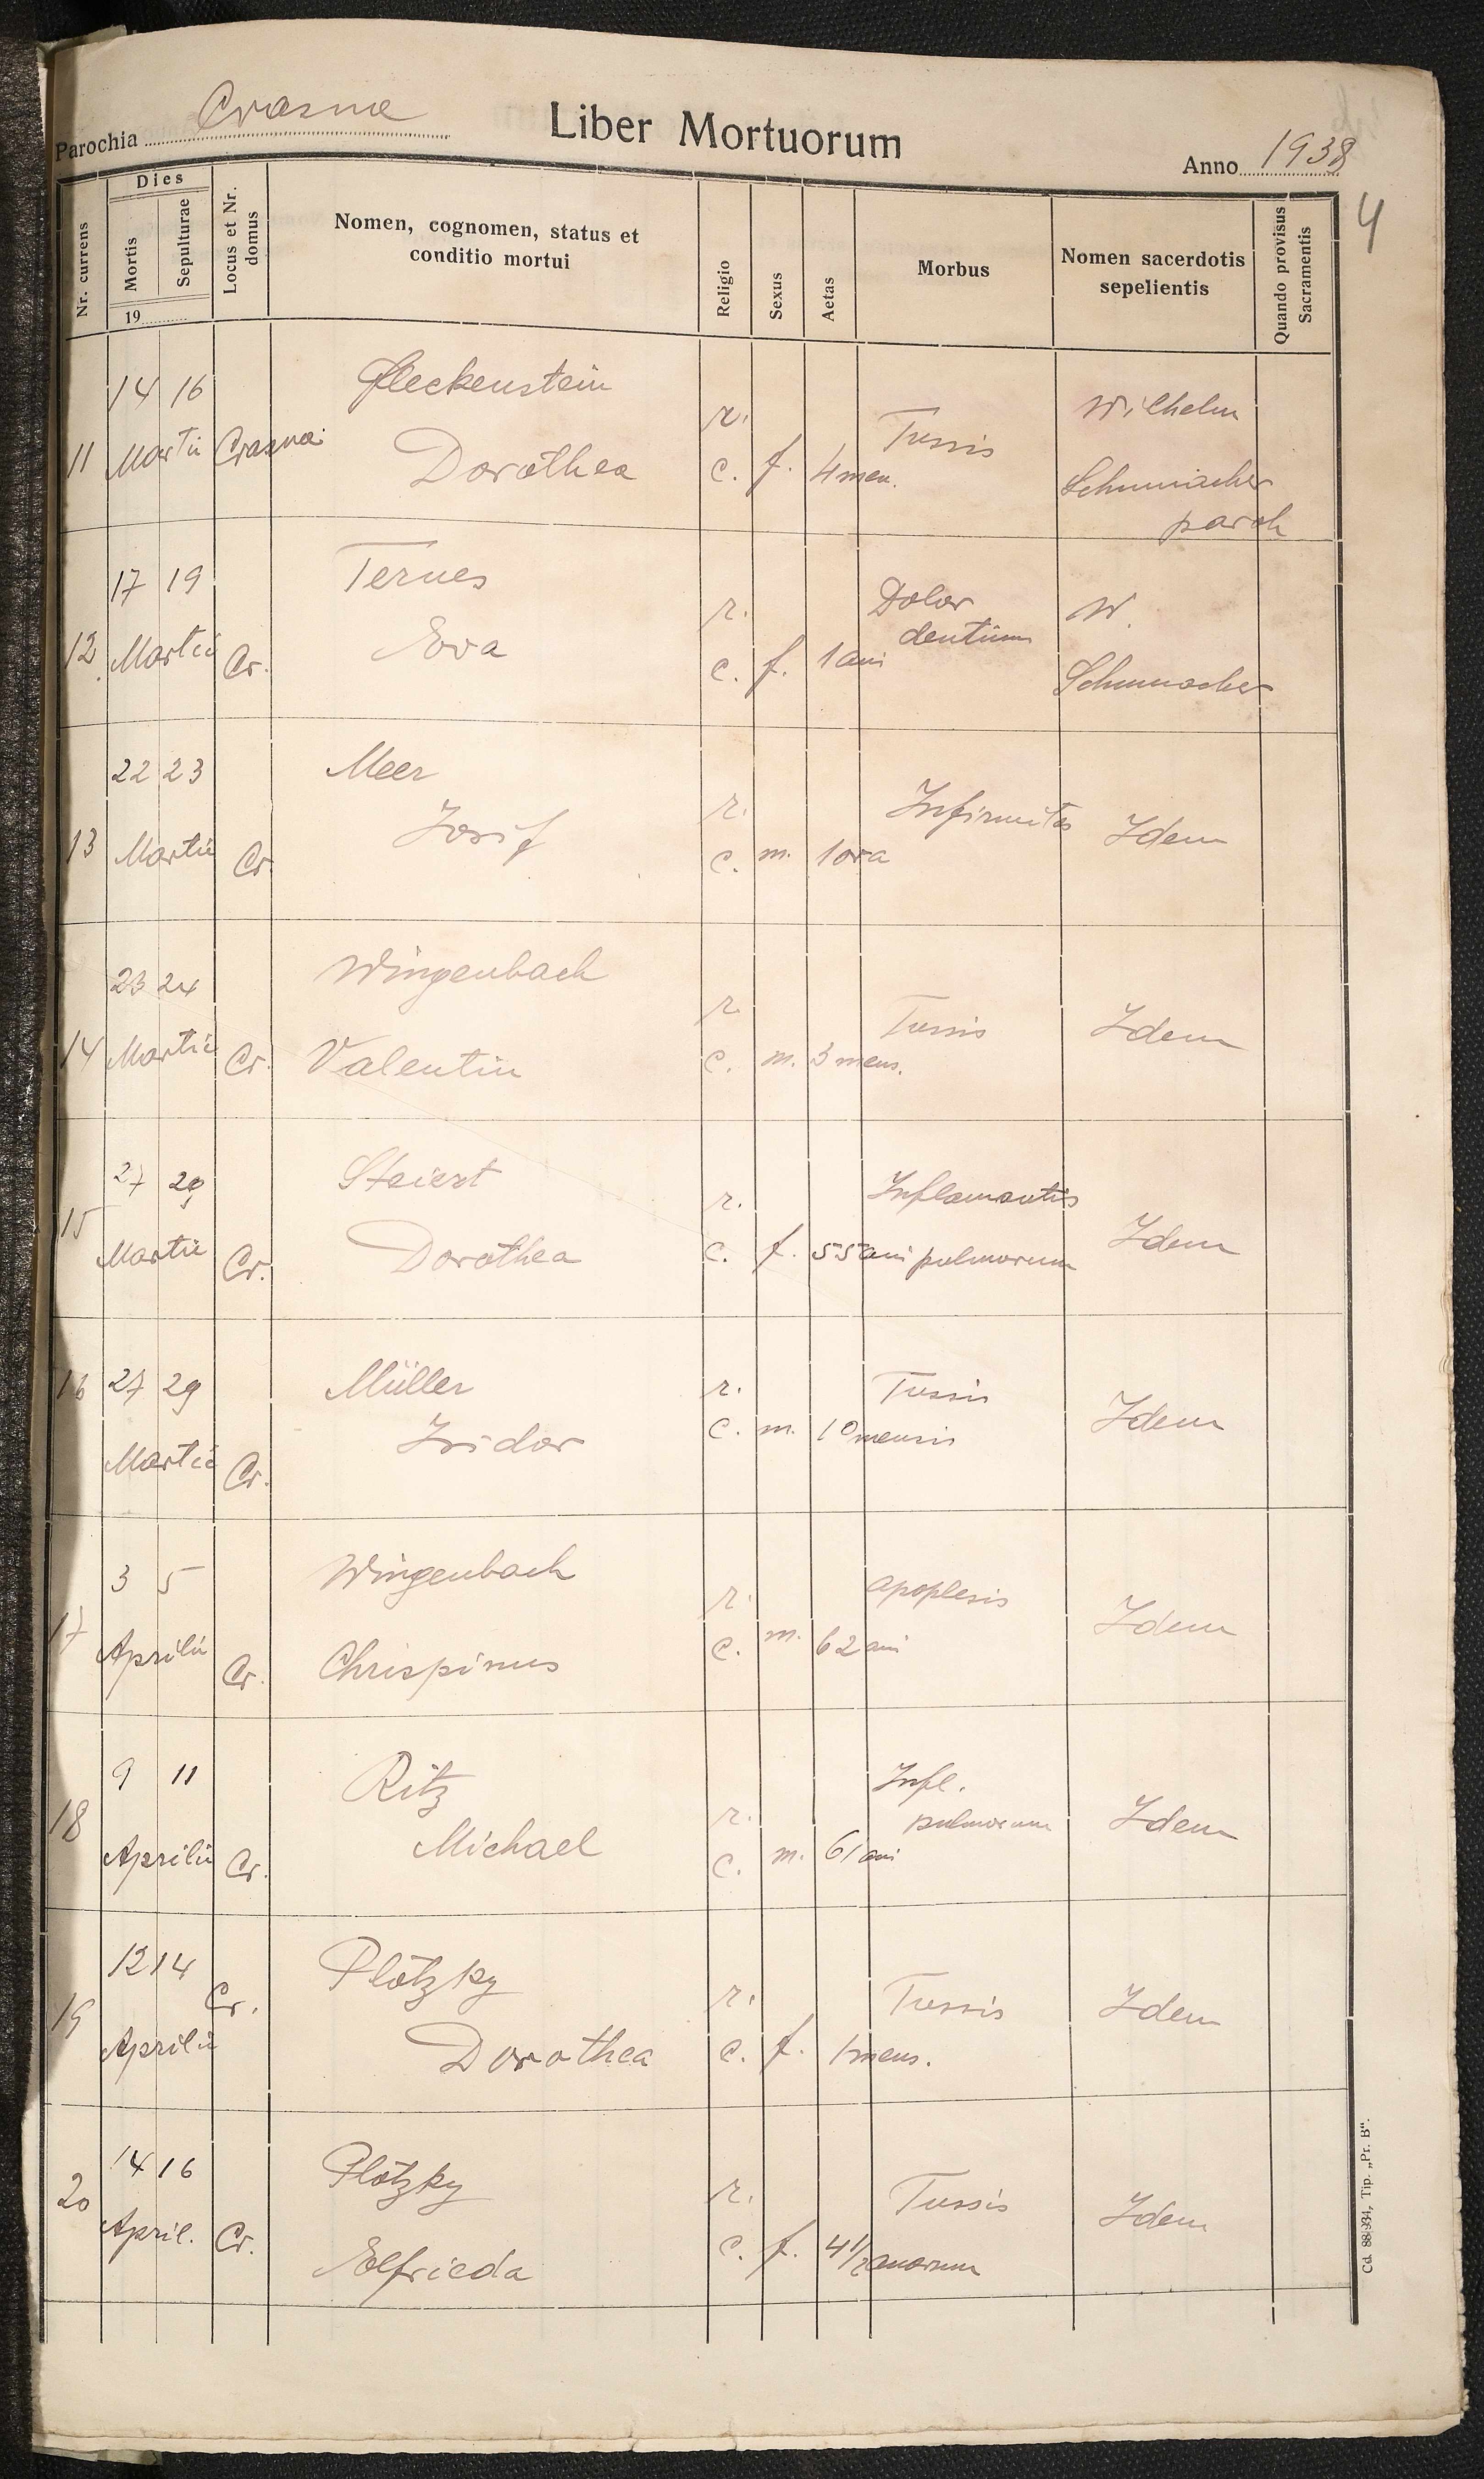 Parochia Crasna
Liber Mortuorum
Anno 1938
4
Nr. currens
Dies
Mortis
Sepulturae
19
Locus et Nr. domus
Nomen, cognomen, status et
conditio mortui
Religio
Sexus
Aetas
Morbus
Nomen sacerdotis
sepelientis
Quando provisus
Sacramentis
14 16 Fleckenstein r. Tussis Wilhelm
11 Martii Crasna Dorothea c. f. 4 men. Schumacher
paroh
17 19 Ternes r. Dolor W.
dentium
12 Martii Cr. Eva c. f. 1 ani Schumacher
22 23 Meer r. Infirmitas
13 Martii Cr. Josif c. m. 1 ora Idem
23 24 Wingenbach r. Tussis Idem
14 Martii Cr. Valentin c. m. 3 mens.
27 29 Steiert r. Inflamantis
15 Martii Cr. Dorothea c. f. 55 ani pulmorum Idem
16 27 29 Müller r. Tussis
Martii Cr. Isidor c. m. 10 mensis Idem
3 5 Wingenbach r. apoplesis
17 Aprilii Cr. Chrispinus c. m. 62 ani Idem
9 11 Ritz r. Infl.
pulmorum
18 Aprilii Cr. Michael c. m. 61 ani Idem
12 14 Cr. Plotzky r. Tussis Idem
19 Aprilii Dorothea c. f. 1 mens.
14 16 Plotzky r. Tussis
20 April. Cr. Elfrieda c. f. 4 1/2 anorum Idem
Cd. 88|934, Tip. „Pr. B“.